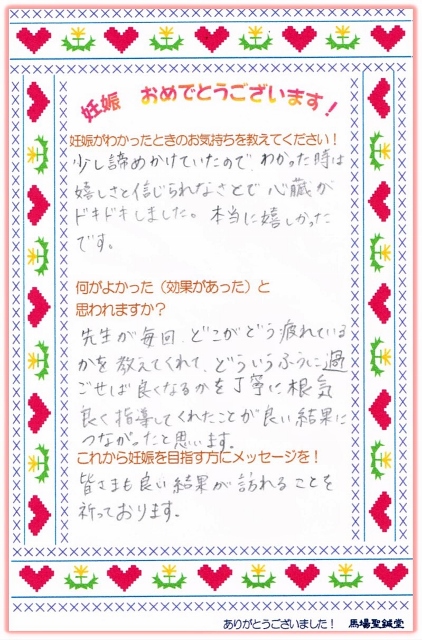 妊娠 おめでとうございます！
妊娠がわかったときのお気持ちを教えてください！
少し諦めかけていたので、わかった時は
嬉しさと信じられなさとで心臓が
ドキドキしました。本当に嬉しかった
です。
何がよかった（効果があった）と
思われますか？
先生が毎回、どこがどう疲れている
かを教えてくれて、どういうふうに過
ごせば良くなるかを丁寧に根気
良く指導してくれたことが良い結果に
つながったと思います。
これから妊娠を目指す方にメッセージを！
皆さまも良い結果が訪れることを
祈っております。
ありがとうございました！ 馬場聖鍼堂